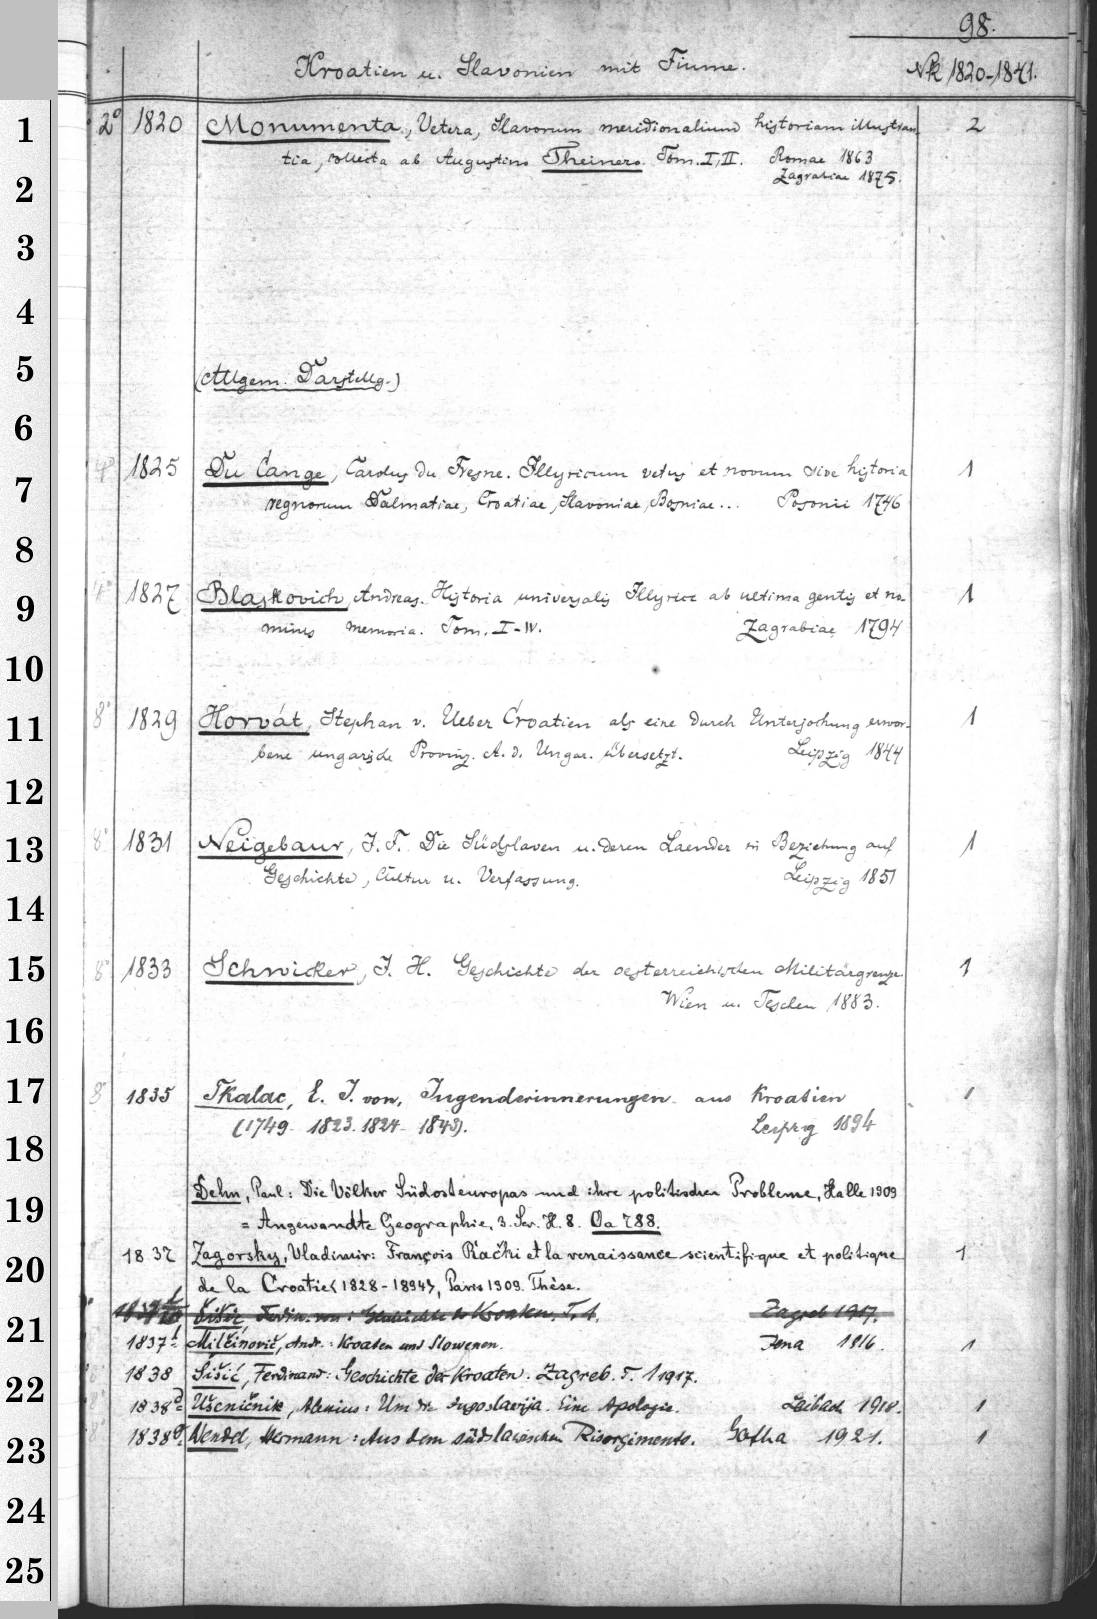 98.
Kroatien u. Slavonien mit Fiume. Nk 1820-1841.
1
2
3
4
5
6
7
8
9
10
11
12
13
14
15
16
17
18
19
20
21
22
23
24
25
2° 1820 Monumenta, Vetera, Slavorum meridionalium historiam illustran- 2
tia, collecta ab Augustino Theinero. Tom. I, II. Romae 1863
Zagrabiae 1875.
(Allgem. Darstellg.)
4° 1825 Du Cange, Carolus du Fresne. Illyricum vetus et novum sive historia 1
regnorum Dalmatiae, Croatiae, Slavoniae, Bosniae... Posonii 1746
4° 1827 Blaskovich, Andreas. Historia universalis Illyrici ab ultima gentis et no- 1
minis memoria. Tom. I-IV. Zagrabiae 1794
8° 1829 Horvát, Stephan v. Ueber Croatien als eine durch Unterjochung erwor- 1
bene ungarische Provinz. A. d. Ungar. übersetzt. Leipzig 1844
8° 1831 Neigebaur, J. F. Die Südslaven u. deren Laender in Beziehung auf 1
Geschichte, Cultur u. Verfassung. Leipzig 1851
8° 1833 Schwicker, J. H. Geschichte der oesterreichischen Militärgrenze 1
Wien u. Teschen 1883.
8° 1835 Tkalac, E. I. von, Jugenderinnerungen aus Kroatien 1
(1749-1823. 1824-1843). Leipzig 1894
Dehn, Paul: Die Völker Südosteuropas und ihre politischen Probleme, Halle 1909
= Angewandte Geographie, 3. Ser. H. 8. Oa 788.
1837 Zagorsky, Vladimir: François Rački et la renaissance scientifique et politique 1
de la Croatie <1828-1894>, Paris 1909. Thèse.
Šišić, Ferdin. von: Geschichte der Kroaten. T. 1. Zagreb 1917.
1837f Milčinovič, Andr.: Kroaten und Slowenen. Jena 1916. 1
1838 Šišić, Ferdinand: Geschichte der Kroaten. Zagreb. T. 1 1917.
1838d Ušeničnik, Alexius: Um die Jugoslavija. Eine Apologie. Laibach 1918. 1
1838g Wendel, Hermann: Aus dem südslawischen Risorgimento. Gotha 1921. 1